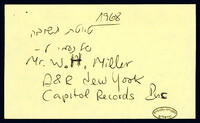 1968
טיוטת תשובה
Mr. W.H. Miller
A&R New York
Capitol Records Inc